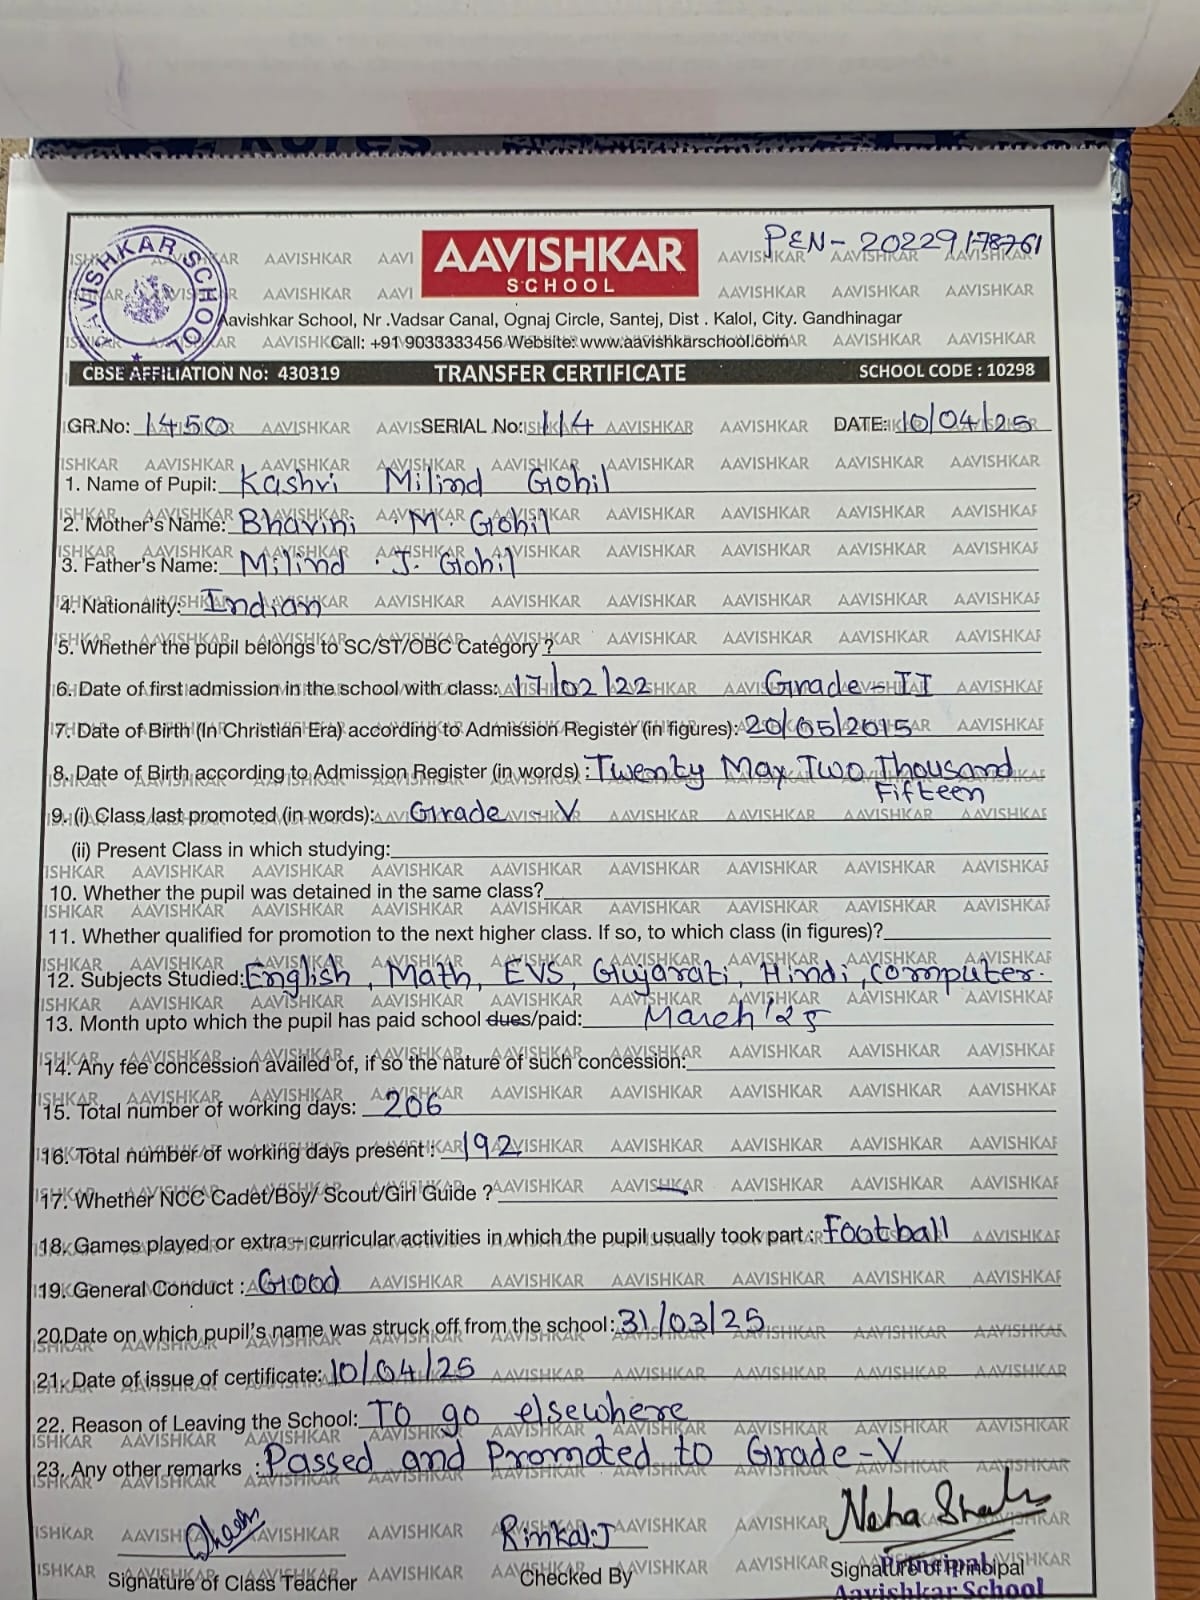 AAVISHKAR SCHOOL
PEN- 20229178761
AAVISHKAR
SCHOOL
Aavishkar School, Nr .Vadsar Canal, Ognaj Circle, Santej, Dist . Kalol, City. Gandhinagar
Call: +91 9033333456 Website: www.aavishkarschool.com
CBSE AFFILIATION No: 430319 TRANSFER CERTIFICATE SCHOOL CODE : 10298
GR.No: 1450 SERIAL No: 114 DATE: 10/04/25
1. Name of Pupil: Kashvi Milind Gohil
2. Mother's Name: Bhavini . M. Gohil
3. Father's Name: Milind . J. Gohil
4. Nationality: Indian
5. Whether the pupil belongs to SC/ST/OBC Category ?
6. Date of first admission in the school with class: 17/02/22 Grade-II
7. Date of Birth (In Christian Era) according to Admission Register (in figures): 20/05/2015
8. Date of Birth according to Admission Register (in words) : Twenty May Two Thousand
Fifteen
9. (i) Class last promoted (in words): Grade - V
(ii) Present Class in which studying:
10. Whether the pupil was detained in the same class?
11. Whether qualified for promotion to the next higher class. If so, to which class (in figures)?
12. Subjects Studied: English, Math, EVS, Gujarati, Hindi, Computer.
13. Month upto which the pupil has paid school dues/paid: March '25
14. Any fee concession availed of, if so the nature of such concession:
15. Total number of working days: 206
16. Total number of working days present : 192
17. Whether NCC Cadet/Boy/ Scout/Girl Guide ? —
18. Games played or extra – curricular activities in which the pupil usually took part : Football
19. General Conduct : Good
20.Date on which pupil's name was struck off from the school: 31/03/25
21. Date of issue of certificate: 10/04/25
22. Reason of Leaving the School: To go elsewhere
23. Any other remarks : Passed and Promoted to Grade-V
Rinkal.J Neha Shah
Signature of Class Teacher Checked By Signature of Principal
Principal
Aavishkar School